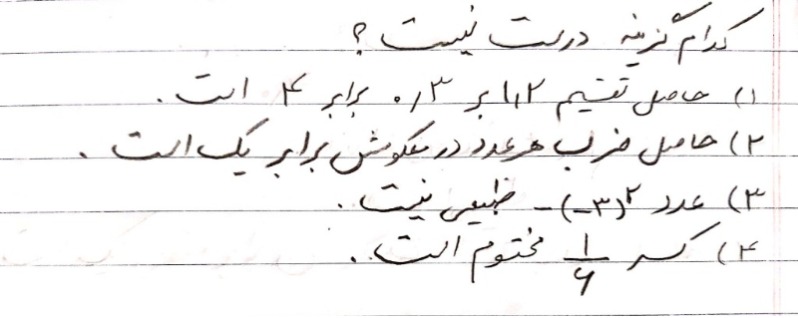 کدام گزینه درست نیست؟
۱) حاصل تقسیم ۱٫۲ بر ۰٫۳ برابر ۴ است.
۲) حاصل ضرب هر عدد در معکوسش برابر یک است.
۳) عدد -(-۳)^۲ طبیعی نیست.
۴) کسر ۱/۶ مختوم است.